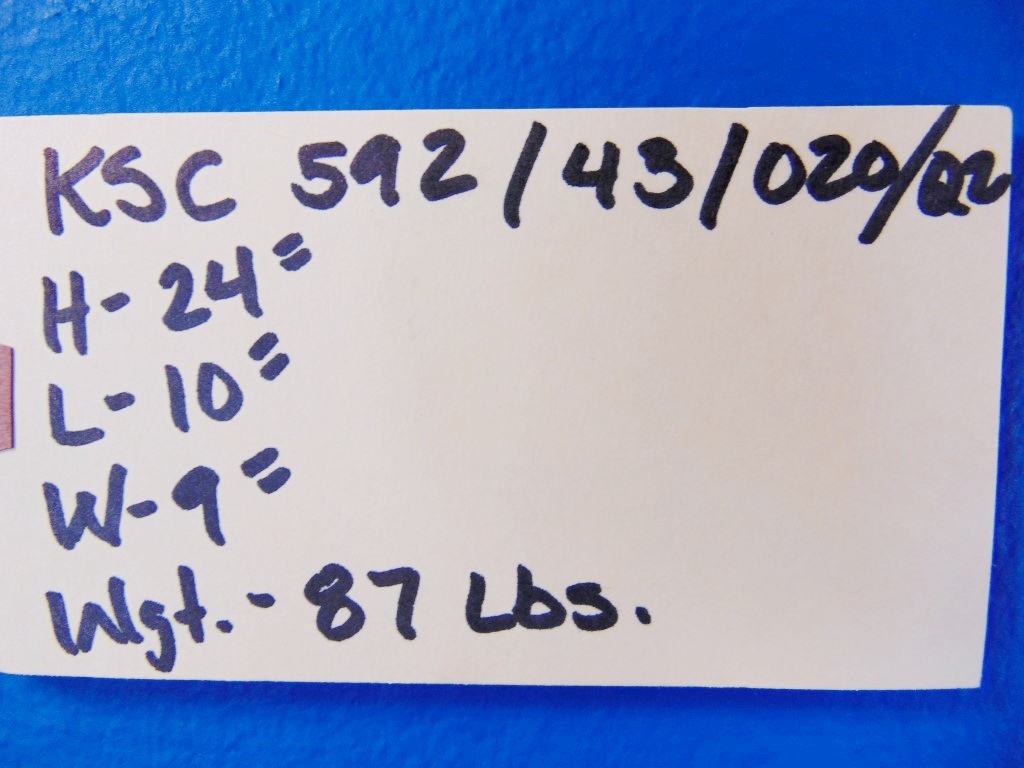 KSC 592/43/020/02
H- 24"
L- 10"
W- 9"
Wgt.- 87 Lbs.